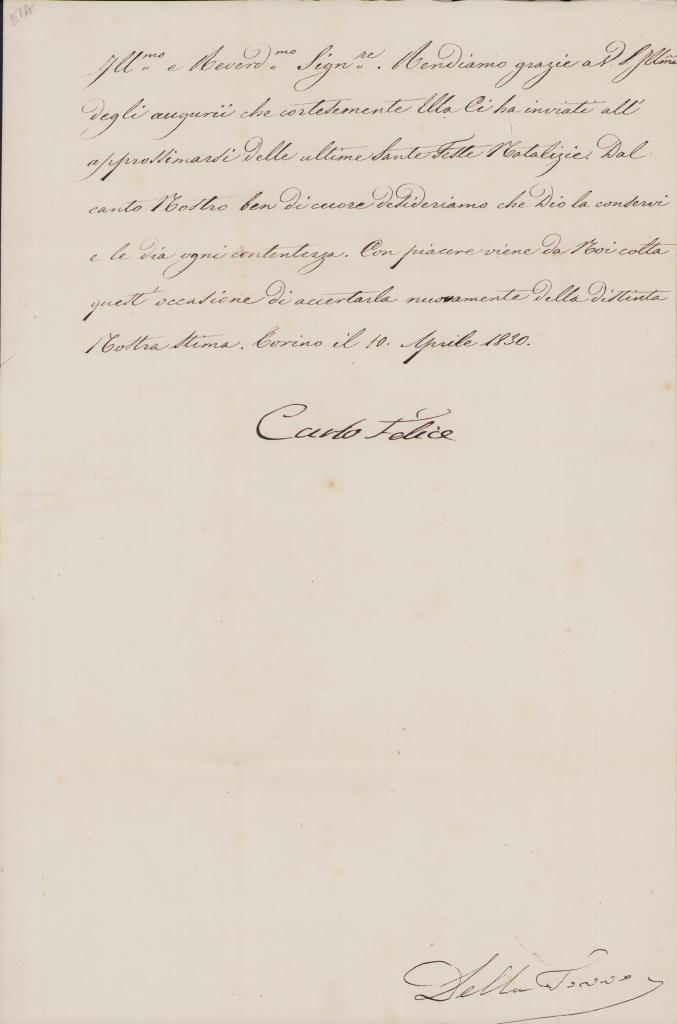 Ill.mo e Reverd.mo Sign.re. Rendiamo grazie a V. S. Illma
degli augurii che cortesemente Ella Ci ha inviati all'
approssimarsi delle ultime Sante Feste Natalizie. Dal
canto Nostro ben di cuore desideriamo che Dio la conservi
e le dia ogni contentezza. Con piacere viene da Noi colta
quest' occasione di accertarla nuovamente della distinta
Nostra stima. Torino il 10. Aprile 1830.
Carlo Felice
Della Torre